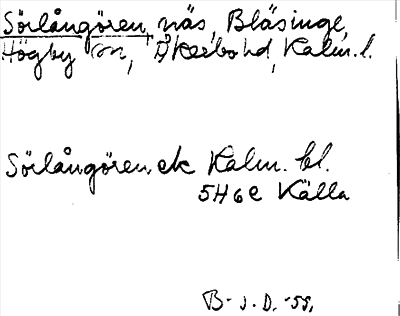 Sörlångören, näs, Bläsinge,
Högby sn, Åkerbo hd, Kalm. l.
Sörlångören ek Kalm. bl.
5H6e Källa
B-J.D.-55.